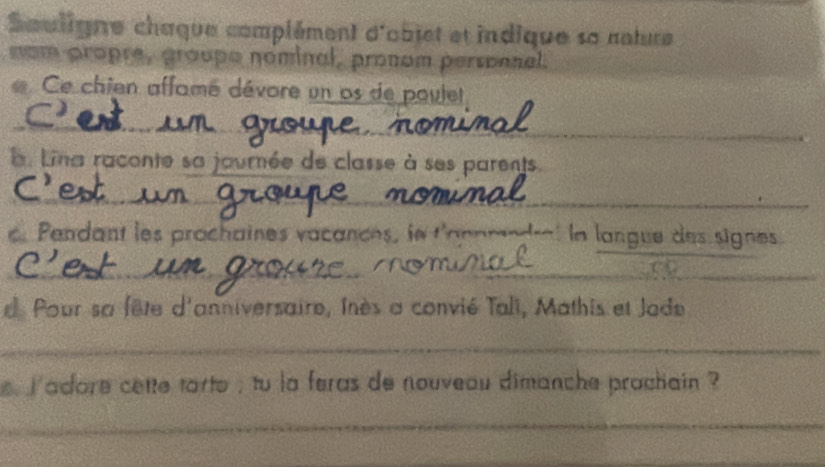 Souligne chaque complément d'objet et indique sa nature
nom propre, groupe nominal, pronom personnel.
a. Ce chien affamé dévore un os de poulet.
C'est un groupe nominal
b. Lina raconte sa journée de classe à ses parents.
C'est un groupe nominal
c. Pendant les prochaines vacances, la langue des signes.
C'est un groupe nominal
d. Pour sa fête d'anniversaire, Inès a convié Tali, Mathis et Jade
e. J'adore cette tarte ; tu la feras de nouveau dimanche prochain ?